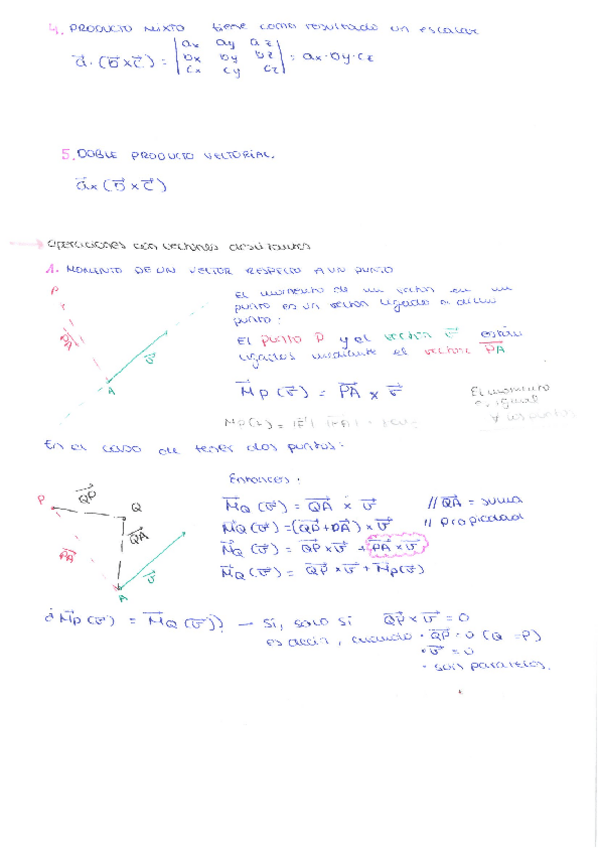 4. PRODUCTO MIXTO tiene como resultado un escalar
a⃗ · (b⃗ × c⃗) = | ax ay az | = ax · by · cz
bx by bz
cx cy cz
5. DOBLE PRODUCTO VECTORIAL.
a⃗ × (b⃗ × c⃗)
→ operaciones con vectores deslizantes
1. MOMENTO DE UN VECTOR RESPECTO A UN PUNTO
El momento de un vector en un
punto es un vector ligado a dicho
punto:
El punto P y el vector v⃗ están
ligados mediante el vector PA
P
v⃗
A
M⃗p (v⃗) = PA × v⃗
El momento
es igual
∀ los puntos
En el caso de tener dos puntos:
Entonces:
P
QP
Q
QA
PA
v⃗
A
M⃗Q (v⃗) = QA × v⃗ // QA = suma
M⃗Q (v⃗) = (QP + PA) × v⃗ // propiedad
M⃗Q (v⃗) = QP × v⃗ + PA × v⃗
M⃗Q (v⃗) = QP × v⃗ + M⃗p(v⃗)
¿M⃗p (v⃗) = M⃗Q (v⃗)? — Sí, solo si QP × v⃗ = 0
es decir, cuando · QP = 0 (Q = P)
· v⃗ = 0
· son paralelos.